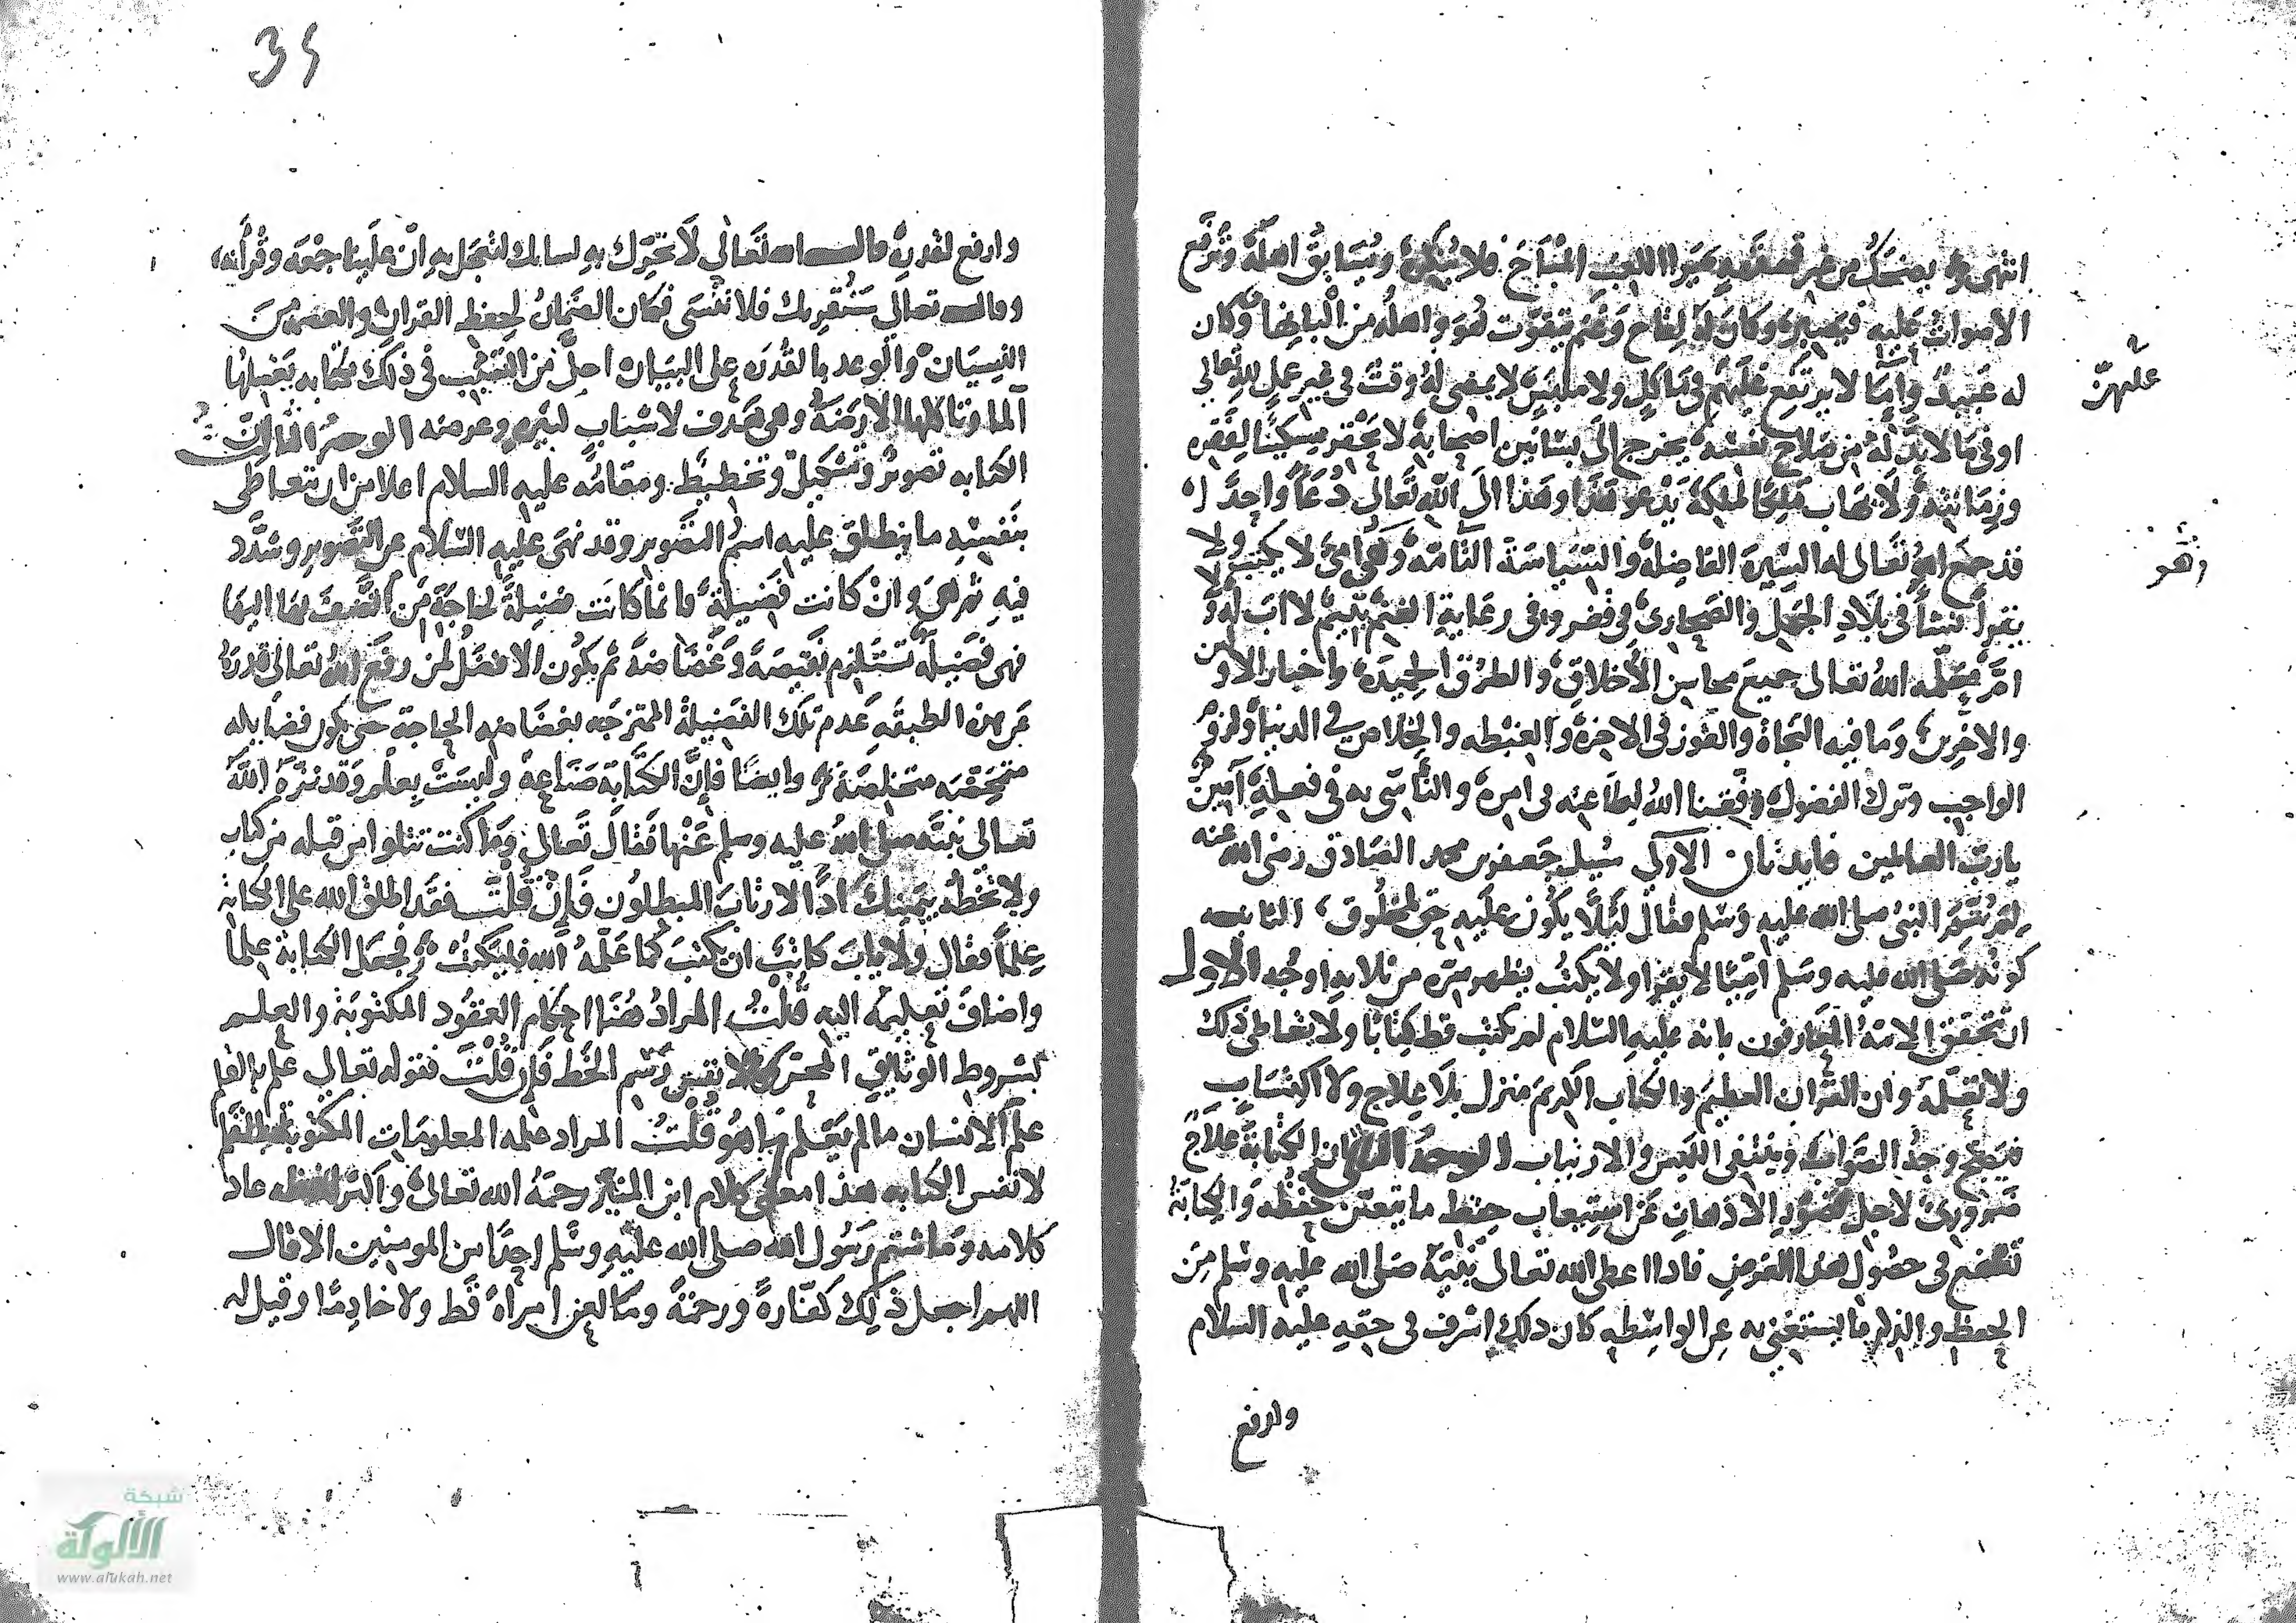 انتهى وله يضحك من غير قهقهة يرا اللعب المباح فلا ينكره ويسابق اهله وترفع
الاصوات عليه فيصبر وكان له لقاح وغنم يتقوت هو واهله من البانها وكان
له عبيد واما لا يرتفع عليهم في ماكل ولا ملبس لا يمضي له وقت في غير عمل لله تعالى
او في ما لا بد له من صلاح نفسه يخرج الى بساتين اصحابه لا يحقر مسكينا لفقره
وزمانته ولا يهاب ملكا لملكه يدعو هذا وهذا الى الله تعالى دعا واحدا
قد جمع الله تعالى له السيرة الفاضلة والسياسة التامة وهو امي لا يكتب ولا
يقرأ نشأ في بلاد الجهل والصحاري في فقر وفي رعاية الغنم يتيم لا اب له ولا
ام فعلمه الله تعالى جميع محاسن الاخلاق والطرق الحميدة واخبار الاولين
والاخرين وما فيه النجاة والفوز في الاخرة والغبطة والخلاص في الدنيا ولزوم
الواجب وترك الفضول وفقنا الله لطاعته في امره والتأسي به في فعله آمين
يارب العالمين فايدتان الاولى سيل جعفر بن محمد الصادق رضي الله عنه
لم يتم النبي صلى الله عليه وسلم فقال ليلا يكون عليه حق لمخلوق الثانيه
كونه صلى الله عليه وسلم اميا لا يقرا ولا يكتب يظهر سره من ثلاثة اوجه الاول
ان تحقق الامة العارفون بانه عليه السلام لم يكتب قط كتابا ولا يتعاطى ذلك
ولا تعلمه وان القران العظيم والكتاب الكريم منزل بلا علاج ولا اكتساب
فيتضح وجه الصواب وينتفي اللبس والارتياب الوجه الثاني ان الكتابة علاج
ضروري لاجل قصور الاذهان عن استيعاب حفظ ما يتعين حفظه والكتابة
تنفع في حصول هذا الغرض فاذا اعطى الله تعالى نبيه صلى الله عليه وسلم من
الحفظ والذكر ما يستغني به عن الواسطه كان ذلك اشرف في حقه عليه السلام
وارفع
عليهن
35
وارفع لقدره قال الله تعالى لا تحرك به لسانك لتعجل به ان علينا جمعه وقرأنه
وقال تعالى سنقريك فلا تنسى فكان الضمان لحفظ القران والعصمة من
النسيان والوعد بالقدرة على البيان اجل من التسبب في ذلك بكتابه
الوجه الثالث
الكتابه تصوير وتشكيل وتخطيط ومقامه عليه السلام اعلا من ان يتعاطى
بنفسه ما ينطلق عليه اسم التصوير وقد نهى عليه السلام عن التصوير وشدد
فيه ثم هي وان كانت فضيلة فانما كانت فضيلة لحاجة من اتصف بها اليها
فهي فضيلة تستلزم نقيصة وغضاضة ثم يكون الافضل لمن رفع الله تعالى قدره
عن هذه الطبقه عدم تلك الفضيلة الممتزجه بغضاضة الحاجة حتى يكون فضايله
متمحضه متخلصة وايضا فإن الكتابة صناعة وليست بعلم وقد نزه الله
تعالى نبيه صلى الله عليه وسلم عنها فقال تعالى وما كنت تتلوا من قبله من كتاب
ولا تخطه بيمينك اذا لارتاب المبطلون فإن قلت فقد اطلق الله على الكتابة
علما فقال ولا ياب كاتب ان يكتب كما علمه الله فليكتب فجعل الكتابة علما
واضاف تعليمه اليه قلت المراد هنا احكام العقود المكتوبة والعلم
بشروط الوثايق المحترزة لا نفس رسم الخط فإن قلت فقوله تعالى علم بالقلم
علم الانسان ما لم يعلم ما هو قلت المراد علمه المعلومات المكتوبة بالقلم
لا نفس الكتابه هذا معنى كلام ابن المنير رحمه الله تعالى واكثر لفظه عاد
كلامه وما شتم رسول الله صلى الله عليه وسلم احدا من المومنين الا قال
اللهم اجعل ذلك كفارة ورحمة وما لعن امراة قط ولا خادما وقيل له
شبكة
الألوكة
www.alukah.net